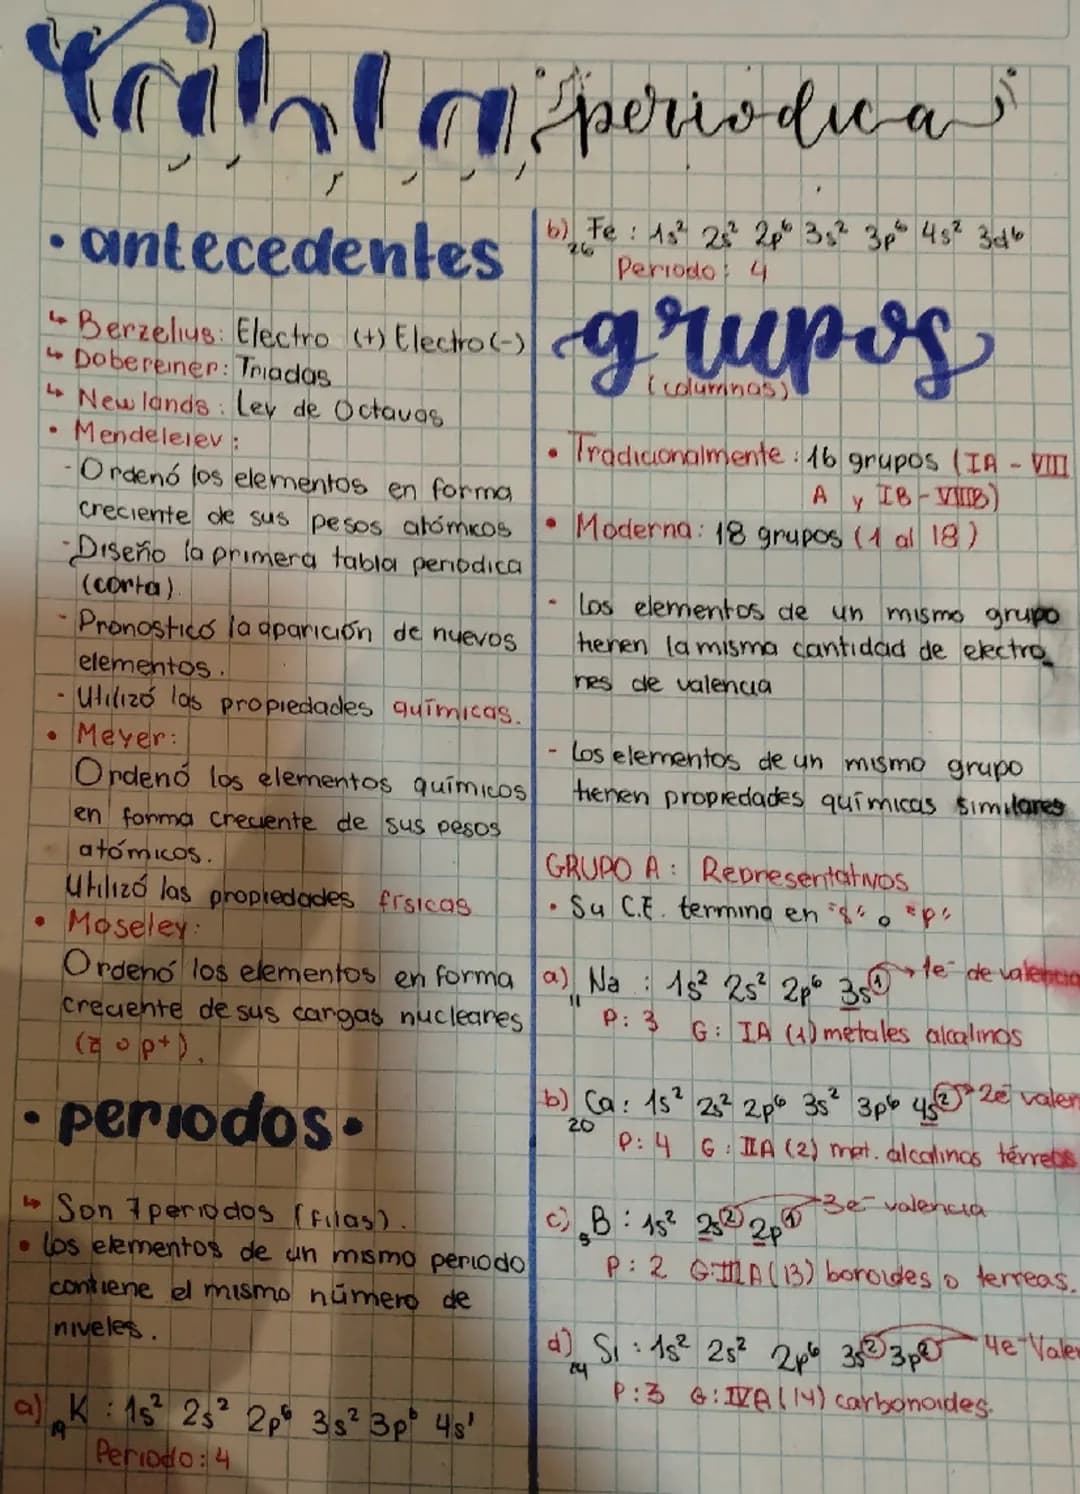 Tabla periodica
• antecedentes
↳ Berzelius: Electro (+) Electro (-)
↳ Dobereiner: Triadas
↳ Newlands: Ley de Octavas
• Mendeleiev:
- Ordenó los elementos en forma
creciente de sus pesos atómicos
- Diseño la primera tabla periodica
(corta).
- Pronosticó la aparición de nuevos
elementos.
- Utilizó las propiedades químicas.
• Meyer:
Ordenó los elementos químicos
en forma creciente de sus pesos
atómicos.
Utilizó las propiedades físicas
• Moseley:
Ordenó los elementos en forma
creciente de sus cargas nucleares
(z o p+).
• periodos •
↳ Son 7 periodos (filas).
• los elementos de un mismo periodo
contiene el mismo número de
niveles.
a) ₁₉K : 1s² 2s² 2p⁶ 3s² 3p⁶ 4s¹
Periodo: 4
b) ₂₆Fe : 1s² 2s² 2p⁶ 3s² 3p⁶ 4s² 3d⁶
Periodo: 4
grupos
(columnas)
• Tradicionalmente : 16 grupos (IA - VIII
A y IB - VIIIB)
• Moderna: 18 grupos (1 al 18)
- los elementos de un mismo grupo
tienen la misma cantidad de electro
nes de valencia
- Los elementos de un mismo grupo
tienen propiedades químicas similares
GRUPO A : Representativos
• Su C.E. termina en "s" o "p"
a) ₁₁Na : 1s² 2s² 2p⁶ 3s¹ → 1e⁻ de valencia
P: 3 G: IA (1) metales alcalinos
b) ₂₀Ca : 1s² 2s² 2p⁶ 3s² 3p⁶ 4s² → 2e⁻ valen
P: 4 G: IIA (2) met. alcalinos térreos
c) ₅B : 1s² 2s² 2p¹ 3e⁻ valencia
P: 2 G: IIIA (13) boroides o terreas.
d) ₁₄Si : 1s² 2s² 2p⁶ 3s² 3p² 4e⁻ Valen
P: 3 G: IVA (14) carbonoides.